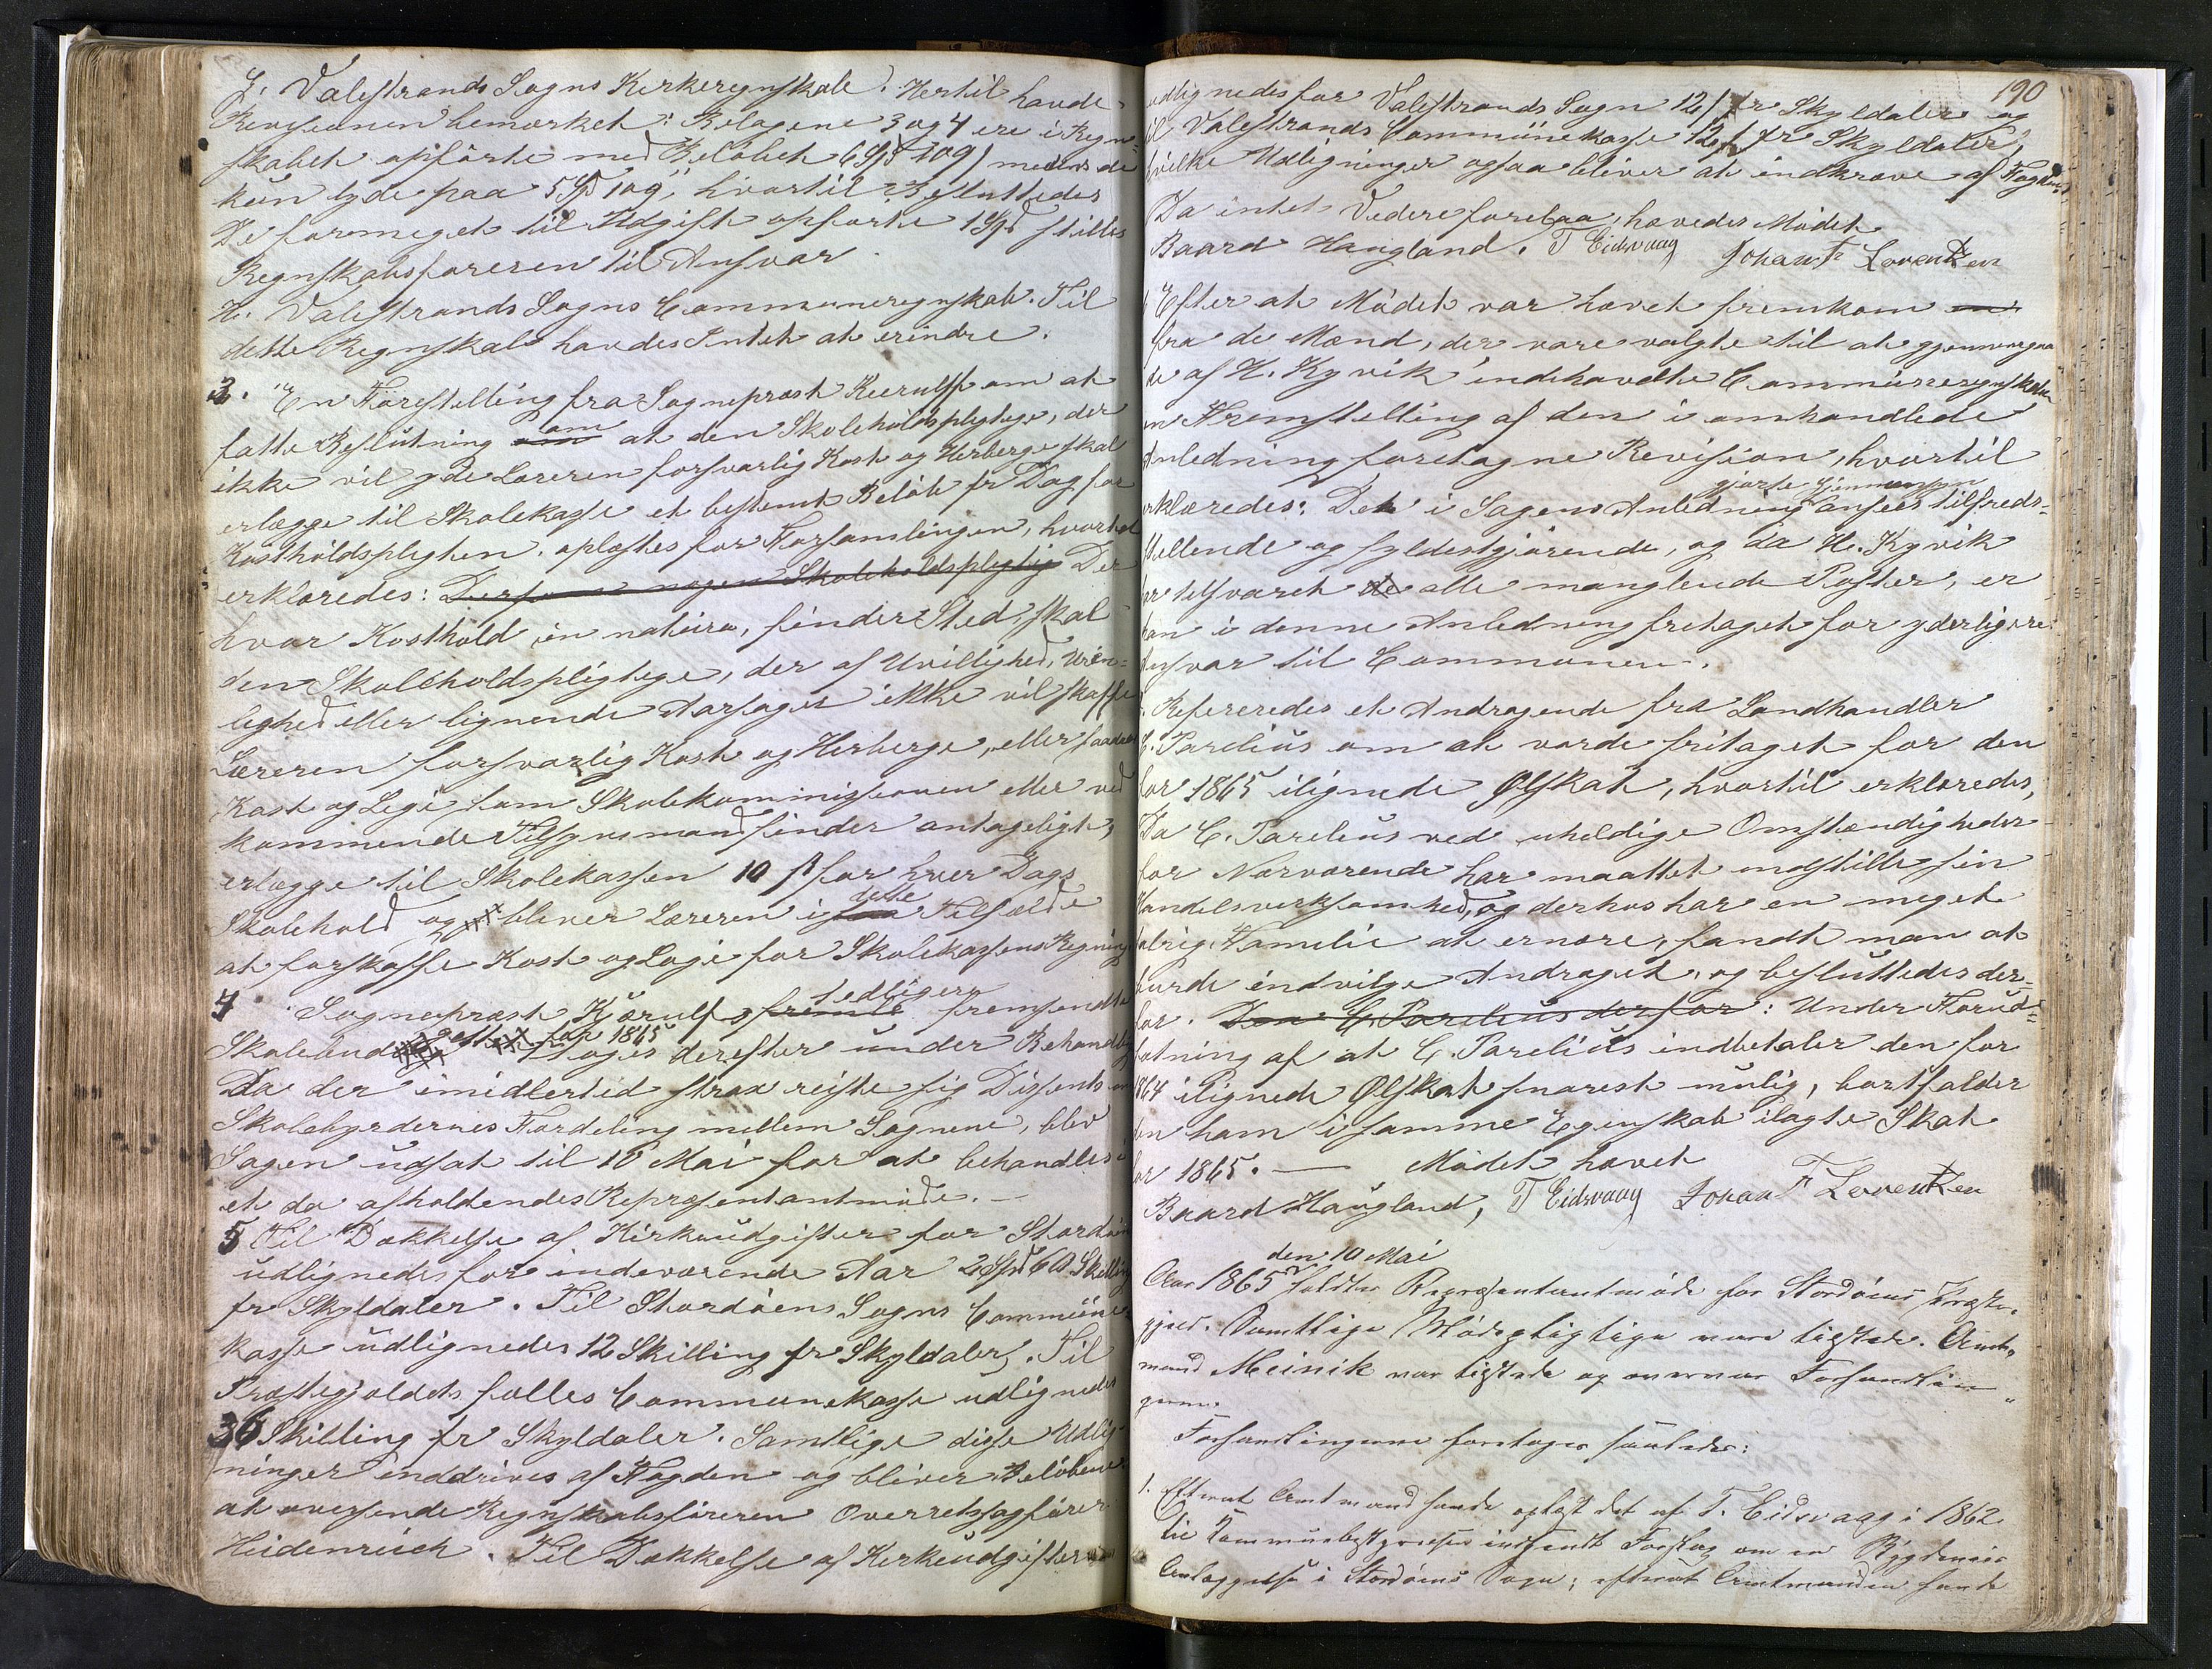 g. Valestrands Sogns Kirkeregnskab. Hertil havde
Revisionen bemærket: Bilagene 3 og 4 ere i Regn-
skabet opførte med Beløbet 6 Spd 109 medens de
kun lyde paa 5 Spd 109, hvortil besluttedes
De formeget til Udgift opførte 1 Spd stilles
Regnskabsføreren til Ansvar.
H. Valestrands Sogns Communeregnskab. Til
dette Regnskab havdes Intet at erindre.
3. En Forestilling fra Sogneprest Kierulff om at
fatte Beslutning om at den Skoleholdspligtige, der
ikke vil yde Læreren forsvarlig Kost og Herberge skal
erlægge til Skolekasse et bestemt Beløb pr Dag for
Kostholdspligten, oplæstes for Forsamlingen, hvortil
erklæredes: Dersom nogen Skoleholdspligtig Der
hvor Kosthold in natura, finder Sted, skal
den Skoleholdspligtige, der af Uvillighed, Uren-
lighed eller lignende Aarsager ikke vil skaffe
Læreren forsvarlig Kost og Herberge, eller saadan
Kost og Logi som Skolekommissionen eller ved-
kommende Tilsynsmand finder antageligt,
erlægge til Skolekassen 10 ß for hver Dags
Skolehold og bliver Læreren i dette Tilfælde
at forskaffe Kost og Logi for Skolekassens Regning
4. Sogneprest Kjerulfs tidligere fremsendte
Skolebudget for 1865 toges derefter under Behandling
Da der imidlertid strax reiste sig Dissents om
Skolebyrdernes Fordeling mellem Sognene, blev
Sagen udsat til 10 Mai for at behandles i
et da afholdendes Repræsentantmøde. —
5 Til Dækkelse af Kirkeudgifter for Stordøen
udlignedes for indeværende Aar 2 Spd 60 Skilling
pr Skyldaler. Til Stordøens Sogns Commune-
kasse udlignedes 12 Skilling pr Skyldaler. Til
Præstegjeldets fælles Communekasse udlignedes
36 Skilling pr Skyldaler. Samtlige disse Udlig-
ninger inddrives af Fogden og bliver Beløbene
at oversende Regnskabsføreren Overretssagfører
Heidenreich. Til Dækkelse af Kirkeudgifter
190
udlignedes for Valestrands Sogn 12 ß pr Skyldaler og
til Valestrands Communekasse 12 ß pr Skyldaler,
hvilke Udligninger ogsaa bliver at indkræve af Fogden
Da intet Videre forelaa, hævedes Mødet
Baard Haugland. T Eidsvaag Johan F Lorentzen
Efter at Mødet var hævet fremkom en
fra de Mænd, der vare valgte til at gjennemgaa
de af H. Kyvik indehavdte Communeregnskaber
en Fremstilling af den i omhandlede
Anledning foretagne Revision, hvortil
erklæredes: Den i Sagens Anledning gjorte Gjennemsyn ansees tilfreds-
stillende og fyldestgjørende, og da H. Kyvik
har tilsvaret de alle manglende Poster, er
han i denne Anledning fritaget for yderligere
Ansvar til Communen.
Refereredes et Andragende fra Landhandler
C. Parelius om at vorde fritaget for den
for 1865 ilignede Ølskat, hvortil erklæredes,
Da C. Parelius ved uheldige Omstændigheder
for Nærværende har maattet indstille sin
Handelsvirksomhed, og derhos har en meget
talrig Familie at ernære, fandt man at
burde indvilge Andraget, og besluttedes der-
for. Den C. Parelius derfor: Under Forud-
sætning af at C. Parelius indbetaler den for
1864 ilignede Ølskat snarest mulig, bortfalder
den ham i samme Egenskab ilagte Skat
for 1865. — Mødet hævet
Baard Haugland, T Eidsvaag Johan F Lorentzen
den 10 Mai
Aar 1865 holdtes Repræsentantmøde for Stordøens Præste-
gjeld. Samtlige Mødepligtige vare tilstede. Amt-
mand Meinik var tilstede og overvar Forhandlin-
gerne.
Forhandlingerne foretoges saaledes:
1. Efterat Amtmand havde oplæst det af T. Eidsvaag i 1862
til Kommunebestyrelsen indsendt Forslag om en Bygdeveis
Anlæggelse i Stordøens Sogn; efterat Amtmanden havde